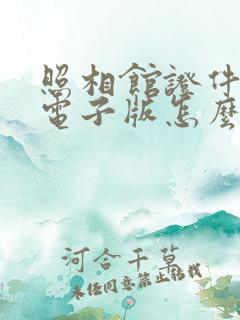 照相館證件
電子版怎麼
河合千草
未经同意禁止转载